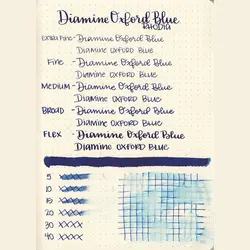 Diamine Oxford Blue
RHODIA
EXTRA FINE - Diamine Oxford Blue
DIAMINE OXFORD BLUE
FINE - Diamine Oxford Blue
DIAMINE OXFORD BLUE
MEDIUM - Diamine Oxford Blue
DIAMINE OXFORD BLUE
BROAD - Diamine Oxford Blue
DIAMINE OXFORD BLUE
FLEX - Diamine Oxford Blue
DIAMINE OXFORD BLUE
5 XXXX
10 XXXX
15 XXXX
20 XXXX
30 XXXX
40 XXXX